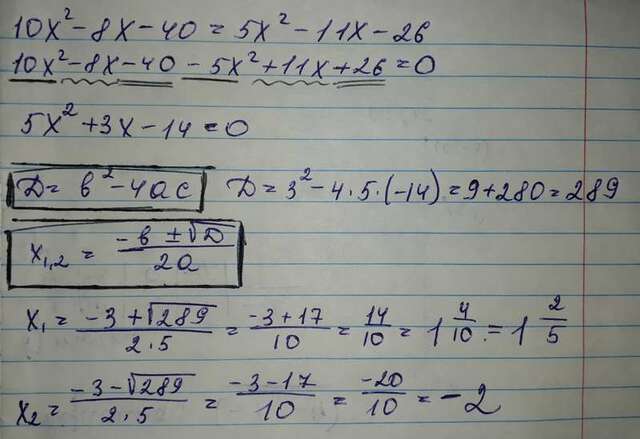 10x² - 8x - 40 = 5x² - 11x - 26
10x² - 8x - 40 - 5x² + 11x + 26 = 0
5x² + 3x - 14 = 0
D = b² - 4ac D = 3² - 4 · 5 · (-14) = 9 + 280 = 289
x₁,₂ = (-b ± √D)/(2a)
x₁ = (-3 + √289)/(2 · 5) = (-3 + 17)/10 = 14/10 = 1 4/10 = 1 2/5
x₂ = (-3 - √289)/(2 · 5) = (-3 - 17)/10 = -20/10 = -2